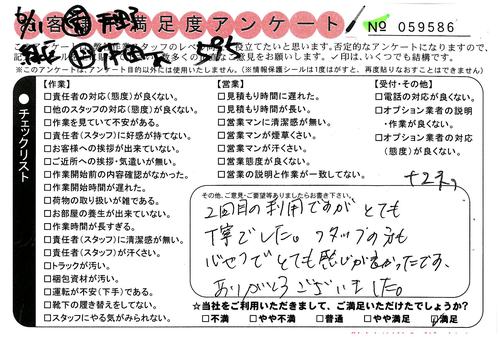 お客様満足度アンケート
№ 059586
※このアンケートは、アンケート目的以外には使用いたしません。(※情報保護シールは1度がすと、再度貼りなおすことはできません)
チェックリスト
【作業】
□責任者の対応(態度)が良くない。
□他のスタッフの対応(態度)が良くない。
□作業を見ていて不安がある。
□責任者(スタッフ)に好感が持てない。
□お客様への挨拶が出来ていない。
□ご近所への挨拶・気遣いが無い。
□作業開始前の内容確認がなかった。
□作業開始時間が遅れた。
□荷物の取り扱いが雑である。
□お部屋の養生が出来ていない。
□作業時間が長すぎる。
□責任者(スタッフ)に清潔感が無い。
□責任者(スタッフ)が汗くさい。
□トラックが汚い。
□梱包資材が汚い。
□運転が不安(下手)である。
□靴下の履き替えをしてない。
□スタッフにやる気がみられない。
【営業】
□見積もり時間に遅れた。
□見積もり時間が長い。
□営業マンに清潔感が無い。
□営業マンが煙草くさい。
□営業マンが汗くさい。
□営業態度が良くない。
□営業の説明と作業が一致してない。
【受付・その他】
□電話の対応が良くない。
□オプション業者の説明
・作業が良くない。
□オプション業者の対応
(態度)が良くない。
その他、ご意見・ご要望等ありましたらお書き下さい。
2回目の利用ですが とても
丁寧でした。スタッフの方も
心せつで とても感じが良かったです、
ありがとうございました。
☆当社をご利用いただきまして、ご満足いただけたでしょうか?
□不満 □やや不満 □普通 □やや満足 ☑満足